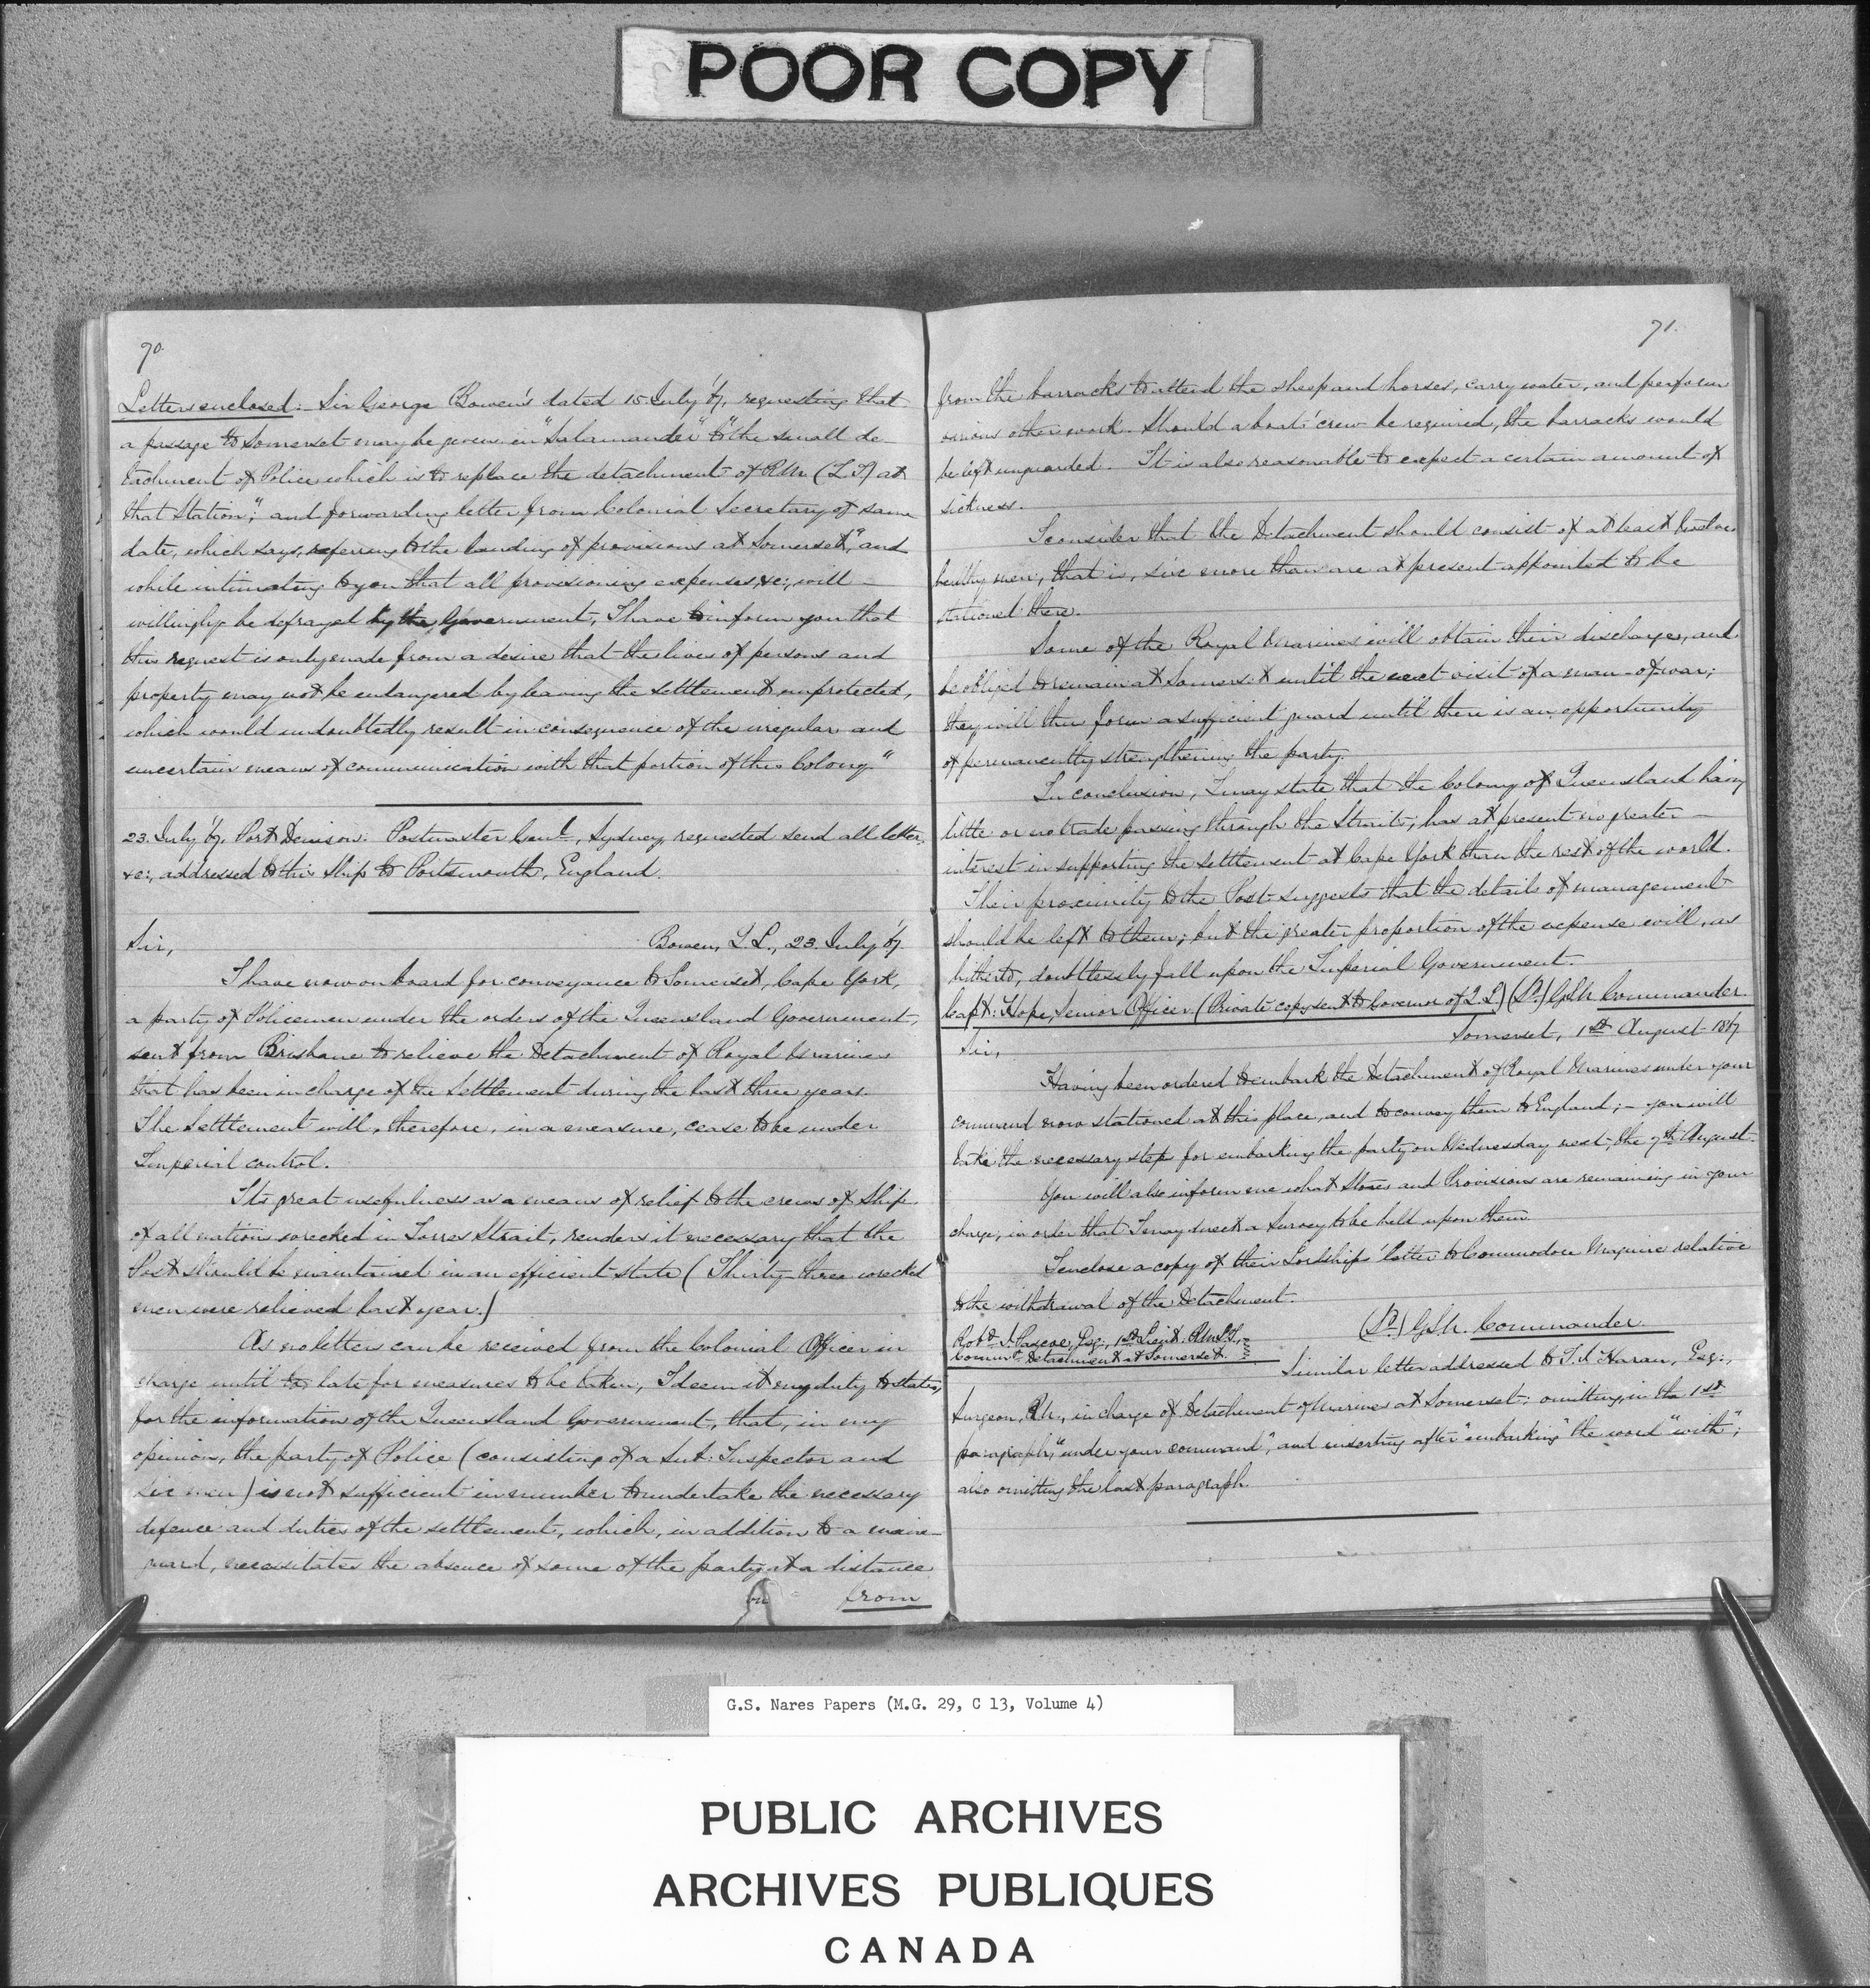 POOR COPY
70.
Letters enclosed: Sir George Bowen's dated 15 July '67, requesting that
a passage to Somerset may be given in "Salamander" to "the small de-
tachment of Police which is to replace the detachment of R.M. (L.I.) at
that Station"; and forwarding letter from Colonial Secretary of same
date, which says, referring to the landing of provisions at Somerset, "and
while intimating to you that all provisioning expenses, &c:, will
willingly be defrayed by the Government, I have to inform you that
this request is only made from a desire that the lives of persons and
property may not be endangered by leaving the settlement unprotected,
which would undoubtedly result in consequence of the irregular and
uncertain means of communication with that portion of this Colony."
23. July '67. Port Denison. Postmaster Genl., Sydney, requested send all letters,
&c:, addressed to this Ship to Portsmouth, England.
Sir, Bowen, Q.L., 23. July '67.
I have now on board for conveyance to Somerset, Cape York,
a party of Policemen under the orders of the Queensland Government,
sent from Brisbane to relieve the Detachment of Royal Marines
that has been in charge of the Settlement during the last three years.
The Settlement will, therefore, in a measure, cease to be under
Imperial control.
Its great usefulness as a means of relief to the crews of Ships
of all nations wrecked in Torres Strait, renders it necessary that the
Post should be maintained in an efficient state (Thirty-three wrecked
men were relieved last year.)
As no letters can be received from the Colonial Officer in
charge until too late for measures to be taken, I deem it my duty to state,
for the information of the Queensland Government, that, in my
opinion, the party of Police (consisting of a Sub: Inspector and
six men) is not sufficient in number to undertake the necessary
defence and duties of the settlement, which, in addition to a main-
guard, necessitates the absence of some of the party at a distance
from
71.
from the barracks to attend the sheep and horses, carry water, and perform
various other work. Should a boat's crew be required, the barracks would
be left unguarded. It is also reasonable to expect a certain amount of
sickness.
I consider that the Detachment should consist of at least twelve
healthy men, that is, six more than are at present appointed to be
stationed there.
Some of the Royal Marines will obtain their discharge, and
be obliged to remain at Somerset until the next visit of a man-of-war;
they will then form a sufficient guard until there is an opportunity
of permanently strengthening the party.
In conclusion, I may state that the Colony of Queensland having
little or no trade passing through the Straits, has at present no greater
interest in supporting the settlement at Cape York than the rest of the world.
Their proximity to the Post suggests that the details of management
should be left to them; but the greater proportion of the expense will, as
hitherto, doubtlessly fall upon the Imperial Government.
Capt: Hope, Senior Officer (Private copy sent to Governor of Q.L.) (Sd.) G.S.N. Commander.
Somerset, 1st August 1867
Sir,
Having been ordered to embark the Detachment of Royal Marines under your
command now stationed at this place, and to convey them to England;- you will
take the necessary steps for embarking the party on Wednesday next, the 7th August.
You will also inform me what Stores and Provisions are remaining in your
charge, in order that I may direct a Survey to be held upon them.
I enclose a copy of their Lordships' letter to Commodore Maguire relative
to the withdrawal of the Detachment.
(Sd.) G.S.N. Commander.
Robt. J. Pascoe, Esq:, 1st Lieut. R.M.L.I.,
Commg. Detachment at Somerset.
Similar letter addressed to T.J. Haran, Esq:,
Surgeon, R.N., in charge of Detachment of Marines at Somerset: omitting, in the 1st
paragraph, "under your command", and inserting after "embarking" the word "with";
also omitting the last paragraph.
G.S. Nares Papers (M.G. 29, C 13, Volume 4)
PUBLIC ARCHIVES
ARCHIVES PUBLIQUES
CANADA